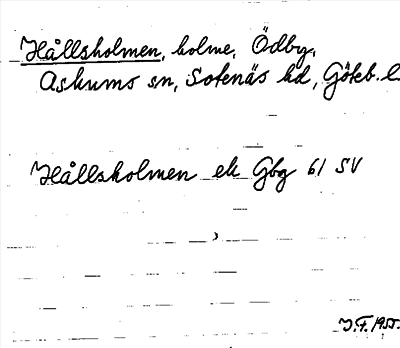 Hållsholmen, holme, Ödby,
Askums sn, Sotenäs hd, Göteb. l.
Hållsholmen ek Gbg 61 SV
J.F. 1955.